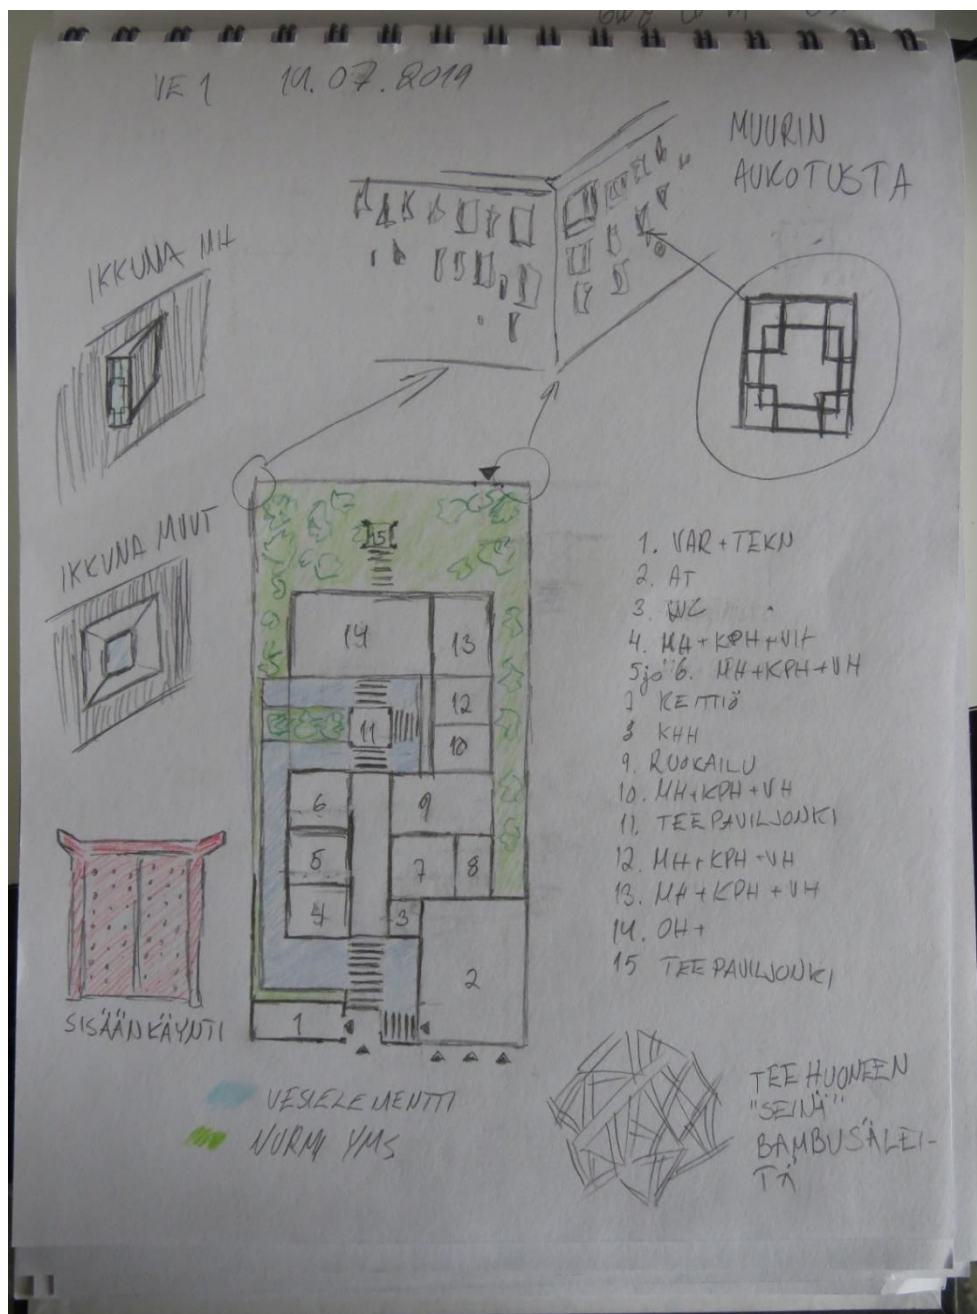 VE 1 14.07.2019
MUURIN
AUKOTUSTA
IKKUNA MH
IKKUNA MUUT
15
14
13
12
11
10
6
9
5
7
8
4
3
2
1
SISÄÄNKÄYNTI
1. VAR + TEKN
2. AT
3. WC
4. MH + KPH + VH
5 ja 6. MH + KPH + VH
7 KEITTIÖ
8 KHH
9. RUOKAILU
10. MH + KPH + VH
11. TEEPAVILJONKI
12. MH + KPH + VH
13. MH + KPH + VH
14. OH +
15 TEEPAVILJONKI
VESIELEMENTTI
NURMI YMS
TEEHUONEEN
"SEINÄ"
BAMBUSÄLEI-
TÄ